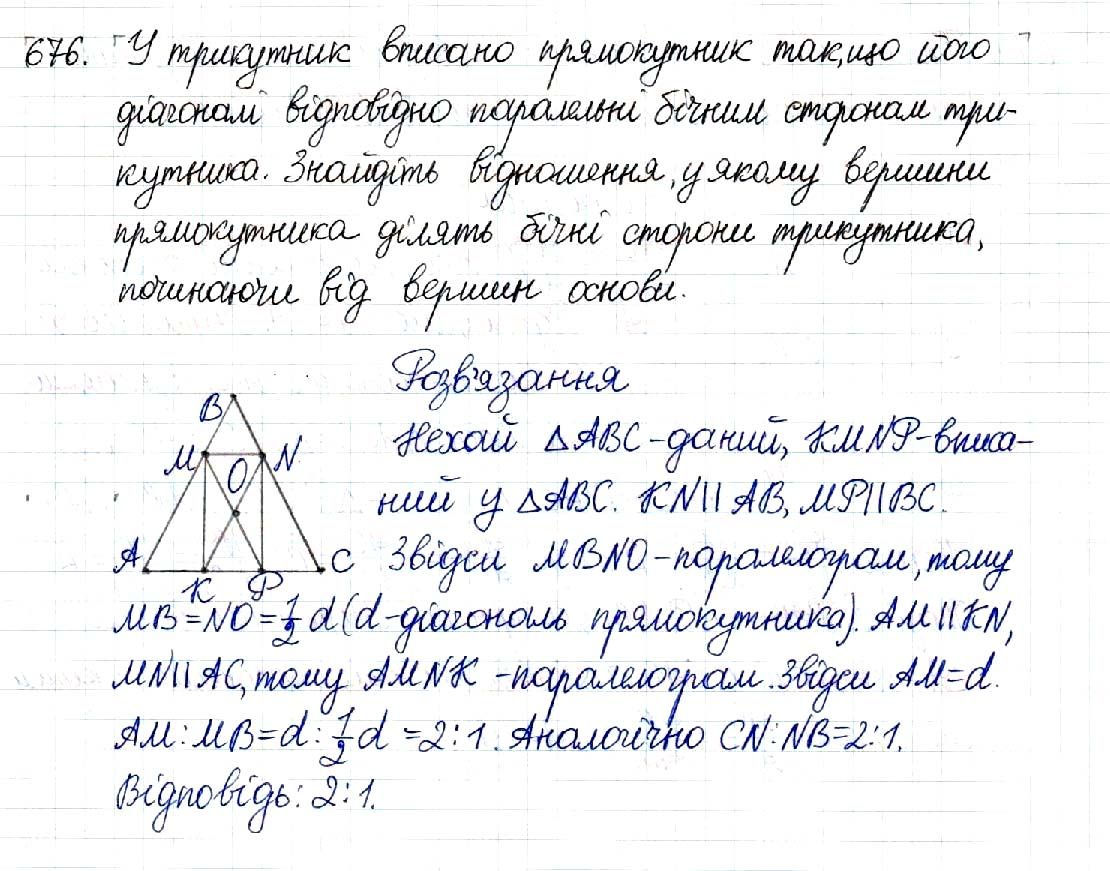 676. У трикутник вписано прямокутник так, що його
діагоналі відповідно паралельні бічним сторонам три-
кутника. Знайдіть відношення, у якому вершини
прямокутника ділять бічні сторони трикутника,
починаючи від вершин основи.
Розв'язання
B
Нехай △ABC - даний, KMNP - вписа-
M O N
ний у △ABC. KN || AB, MP || BC.
A K P C
Звідси MBNO - паралелограм, тому
MB = NO = 1/2 d (d - діагональ прямокутника). AM || KN,
MN || AC, тому AMNK - паралелограм. Звідси AM = d.
AM : MB = d : 1/2 d = 2 : 1. Аналогічно CN : NB = 2 : 1.
Відповідь: 2 : 1.